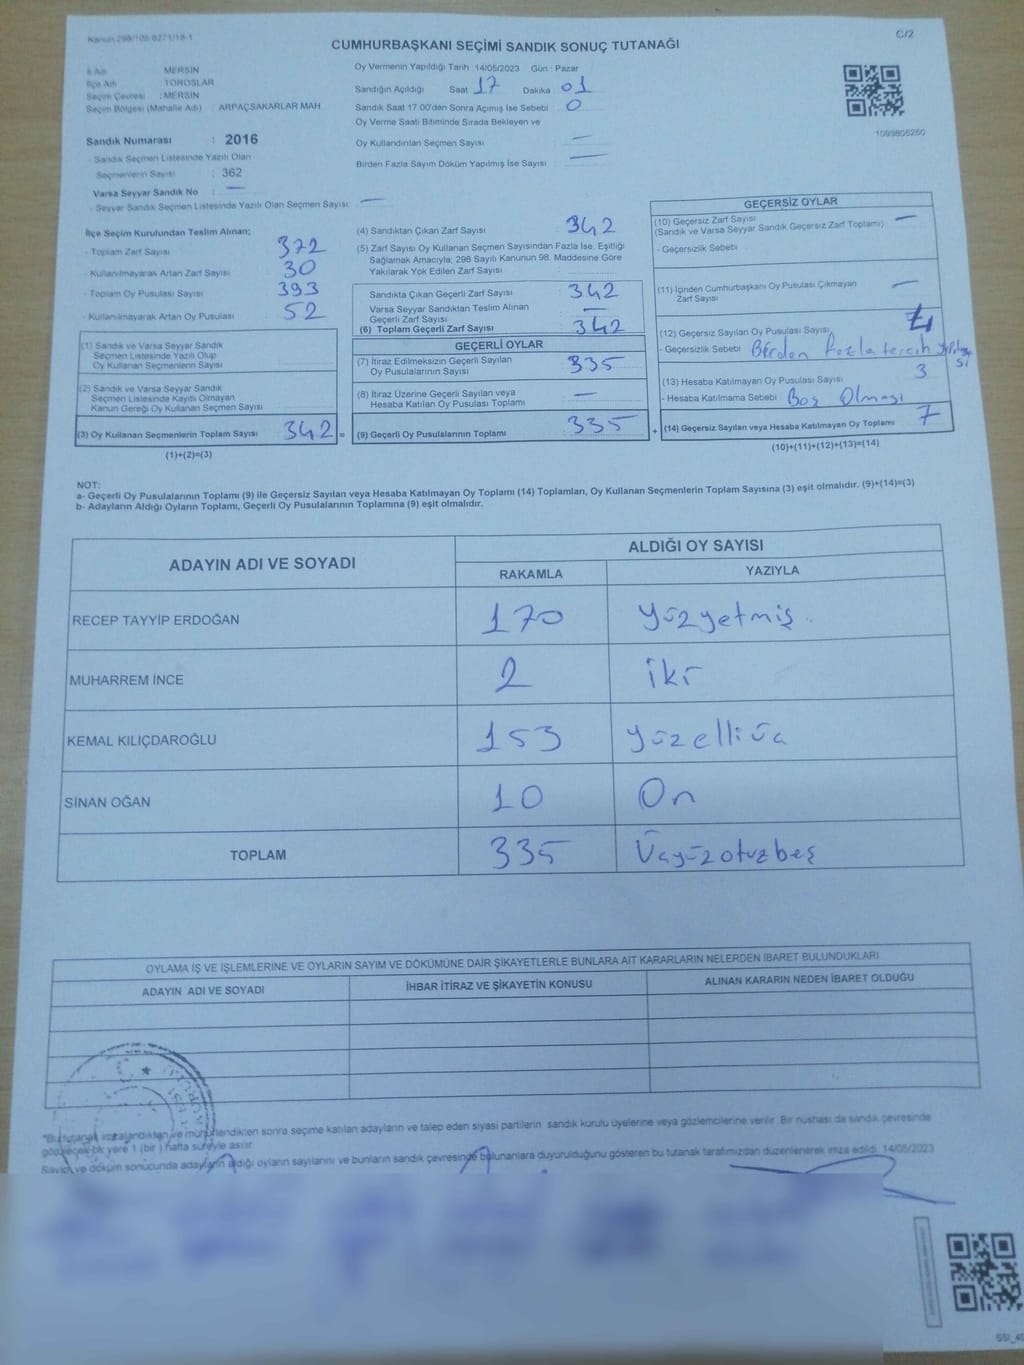 Kanun 298/105 8271/18-1
C/2
CUMHURBAŞKANI SEÇİMİ SANDIK SONUÇ TUTANAĞI
İl Adı MERSİN
İlçe Adı TOROSLAR
Seçim Çevresi : MERSİN
Seçim Bölgesi (Mahalle Adı) : ARPAÇSAKARLAR MAH
Sandık Numarası : 2016
- Sandık Seçmen Listesinde Yazılı Olan
Seçmenlerin Sayısı : 362
Varsa Seyyar Sandık No : —
- Seyyar Sandık Seçmen Listesinde Yazılı Olan Seçmen Sayısı : —
Oy Vermenin Yapıldığı Tarih : 14/05/2023 Gün : Pazar
Sandığın Açıldığı Saat 17 Dakika 01
Sandık Saat 17.00'den Sonra Açılmış İse Sebebi 0
Oy Verme Saati Bitiminde Sırada Bekleyen ve
Oy Kullandırılan Seçmen Sayısı —
Birden Fazla Sayım Döküm Yapılmış İse Sayısı —
1099805250
İlçe Seçim Kurulundan Teslim Alınan;
- Toplam Zarf Sayısı : 372
- Kullanılmayarak Artan Zarf Sayısı : 30
- Toplam Oy Pusulası Sayısı : 393
- Kullanılmayarak Artan Oy Pusulası : 52
(1) Sandık ve Varsa Seyyar Sandık
Seçmen Listesinde Yazılı Olup
Oy Kullanan Seçmenlerin Sayısı
(2) Sandık ve Varsa Seyyar Sandık
Seçmen Listesinde Kayıtlı Olmayan
Kanun Gereği Oy Kullanan Seçmen Sayısı
(3) Oy Kullanan Seçmenlerin Toplam Sayısı 342 =
(1)+(2)=(3)
(4) Sandıktan Çıkan Zarf Sayısı : 342
(5) Zarf Sayısı Oy Kullanan Seçmen Sayısından Fazla İse, Eşitliği
Sağlamak Amacıyla; 298 Sayılı Kanunun 98. Maddesine Göre
Yakılarak Yok Edilen Zarf Sayısı
Sandıkta Çıkan Geçerli Zarf Sayısı : 342
Varsa Seyyar Sandıktan Teslim Alınan
Geçerli Zarf Sayısı —
(6) Toplam Geçerli Zarf Sayısı : 342
GEÇERLİ OYLAR
(7) İtiraz Edilmeksizin Geçerli Sayılan
Oy Pusulalarının Sayısı : 335
(8) İtiraz Üzerine Geçerli Sayılan veya
Hesaba Katılan Oy Pusulası Toplamı : —
(9) Geçerli Oy Pusulalarının Toplamı : 335 +
GEÇERSİZ OYLAR
(10) Geçersiz Zarf Sayısı —
(Sandık ve Varsa Seyyar Sandık Geçersiz Zarf Toplamı)
- Geçersizlik Sebebi
(11) İçinden Cumhurbaşkanı Oy Pusulası Çıkmayan
Zarf Sayısı —
(12) Geçersiz Sayılan Oy Pusulası Sayısı 4
- Geçersizlik Sebebi Birden fazla tercih yapılması
(13) Hesaba Katılmayan Oy Pusulası Sayısı 3
- Hesaba Katılmama Sebebi Boş Olması
(14) Geçersiz Sayılan veya Hesaba Katılmayan Oy Toplamı 7
(10)+(11)+(12)+(13)=(14)
NOT:
a- Geçerli Oy Pusulalarının Toplamı (9) ile Geçersiz Sayılan veya Hesaba Katılmayan Oy Toplamı (14) Toplamları, Oy Kullanan Seçmenlerin Toplam Sayısına (3) eşit olmalıdır. (9)+(14)=(3)
b- Adayların Aldığı Oyların Toplamı, Geçerli Oy Pusulalarının Toplamına (9) eşit olmalıdır.
ADAYIN ADI VE SOYADI ALDIĞI OY SAYISI
RAKAMLA YAZIYLA
RECEP TAYYİP ERDOĞAN 170 Yüzyetmiş
MUHARREM İNCE 2 iki
KEMAL KILIÇDAROĞLU 153 Yüzelliüç
SİNAN OĞAN 10 On
TOPLAM 335 Üçyüzotuzbeş
OYLAMA İŞ VE İŞLEMLERİNE VE OYLARIN SAYIM VE DÖKÜMÜNE DAİR ŞİKAYETLERLE BUNLARA AİT KARARLARIN NELERDEN İBARET BULUNDUKLARI
ADAYIN ADI VE SOYADI İHBAR İTİRAZ VE ŞİKAYETİN KONUSU ALINAN KARARIN NEDEN İBARET OLDUĞU
*Bu tutanak imzalandıktan ve mühürlendikten sonra seçime katılan adayların ve talep eden siyasi partilerin sandık kurulu üyelerine veya gözlemcilerine verilir. Bir nüshası da sandık çevresinde
görülecek bir yere 1 (bir) hafta süreyle asılır.
Sayım ve döküm sonucunda adayların aldığı oyların sayılarını ve bunların sandık çevresinde bulunanlara duyurulduğunu gösteren bu tutanak tarafımızdan düzenlenerek imza edildi. 14/05/2023